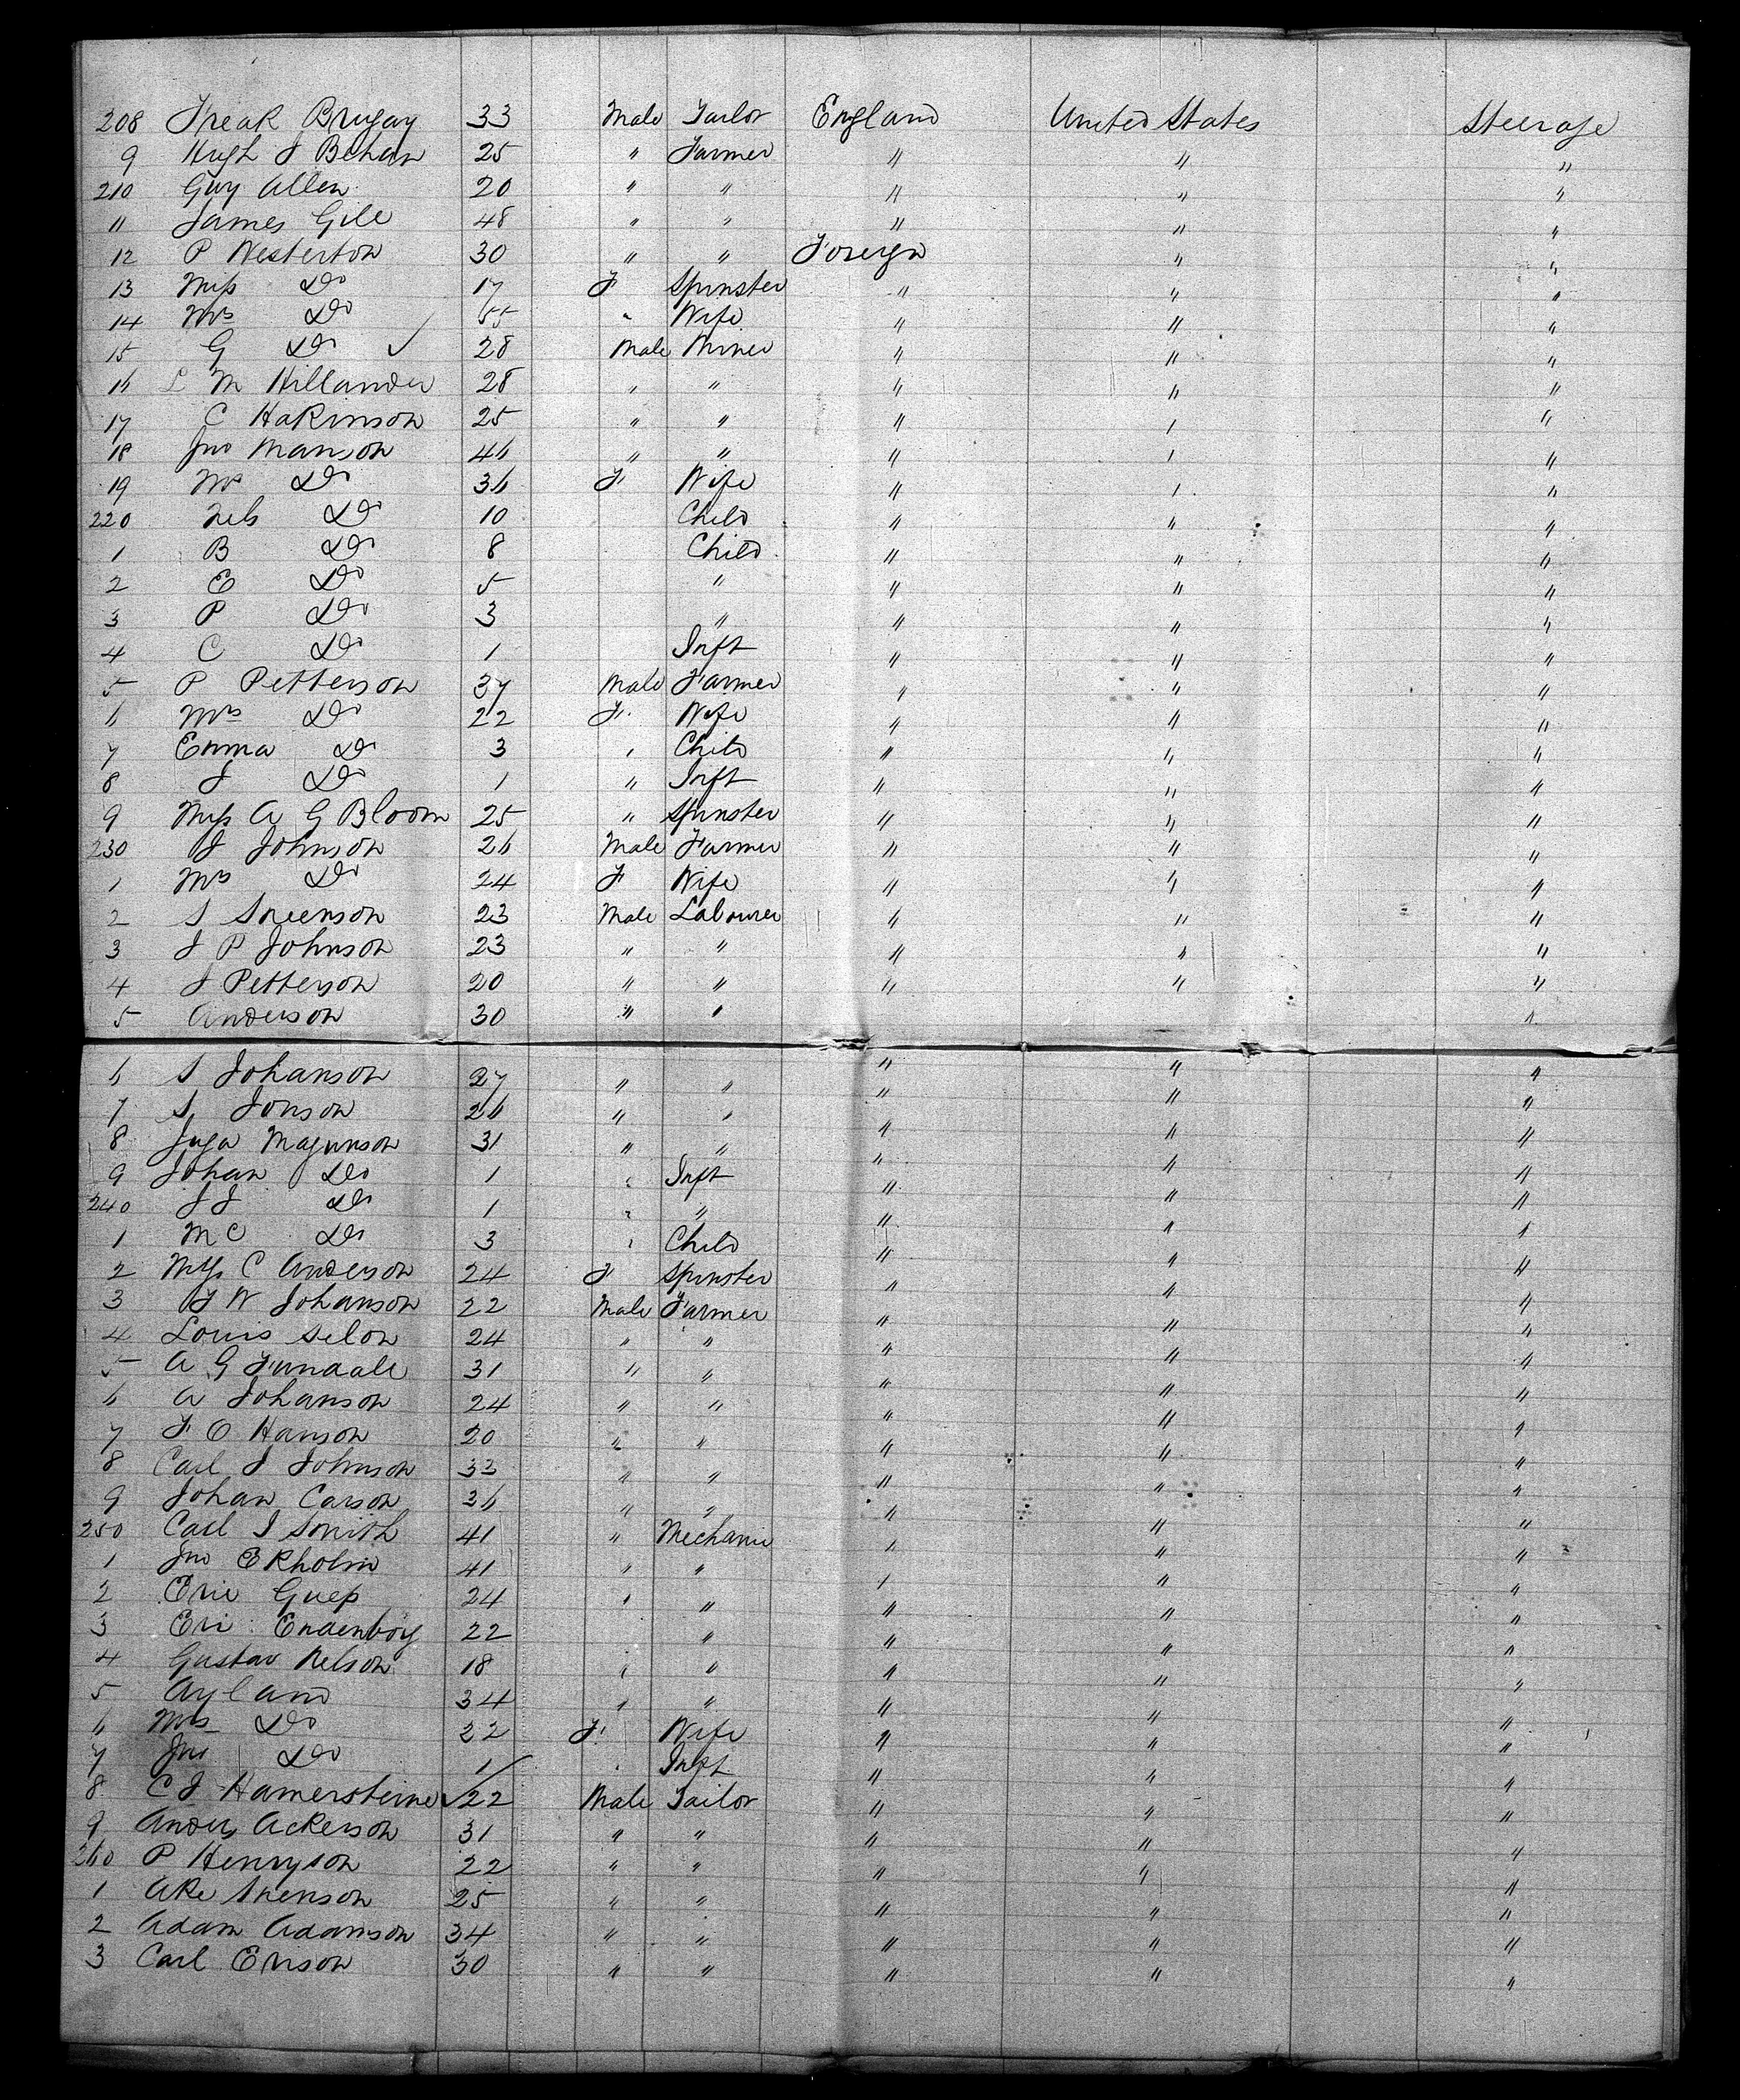 208 Freak Brugay 33 Male Tailor England United States Steerage
9 Hugh J Behan 25 " Farmer " " "
210 Guy Allen 20 " " " " "
11 James Gill 48 " " " " "
12 P Westerton 30 " " Foreign " "
13 Miss Do 17 F Spinster " " "
14 Mrs Do 55 " Wife " " "
15 G Do ✓ 28 Male Miner " " "
16 L M Hillander 28 " " " " "
17 C Hakinson 25 " " " " "
18 Jno Manson 46 " " " " "
19 Mrs Do 36 F Wife " " "
220 Nels Do 10 Child " " "
1 B Do 8 Child " " "
2 E Do 5 " " " "
3 P Do 3 " " " "
4 C Do 1 Inft " " "
5 P Petterson 37 Male Farmer " " "
6 Mrs Do 22 F. Wife " " "
7 Emma Do 3 " Child " " "
8 J Do 1 " Inft " " "
9 Miss A G Bloom 25 " Spinster " " "
230 J Johnson 26 Male Farmer " " "
1 Mrs Do 24 F Wife " " "
2 S Sneenson 23 Male Labourer " " "
3 J P Johnson 23 " " " " "
4 J Petterson 20 " " " " "
5 Anderson 30 " " "
6 S Johanson 27 " " " " "
7 S Jonson 26 " " " " "
8 Inga Magunson 31 " " " " "
9 Johan Do 1 " Inft " " "
240 J J Do 1 " " " " "
1 M C Do 3 " Child " " "
2 Miss C Anderson 24 F Spinster " " "
3 F W Johanson 22 Male Farmer " " "
4 Louis Selon 24 " " " " "
5 A G Fundale 31 " " " " "
6 A Johanson 24 " " " " "
7 F O Hanson 20 " " " " "
8 Carl J Johnson 33 " " " " "
9 Johan Carson 36 " " " " "
250 Carl I Smith 41 " Mechanic " " "
1 Jno Ekholm 41 " " " " "
2 Eric Guess 24 " " " " "
3 Eri Endenboy 22 " " " "
4 Gustav Nelson 18 " " " " "
5 Ayland 34 " " " " "
6 Mrs Do 22 F. Wife " " "
7 Jno Do 1 " Inft " " "
8 C J Hamersteine ✓ 22 Male Tailor " " "
9 Anders Ackerson 31 " " " " "
260 P Henryson 22 " " " " "
1 Ake Snenson 25 " " " " "
2 Adam Adamson 34 " " " " "
3 Carl Erison 30 " " " " "